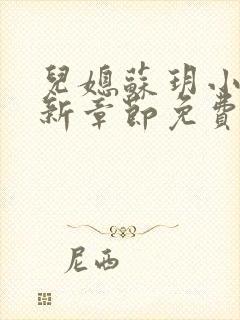 兒媳蘇玥小
新章節免費
尼西